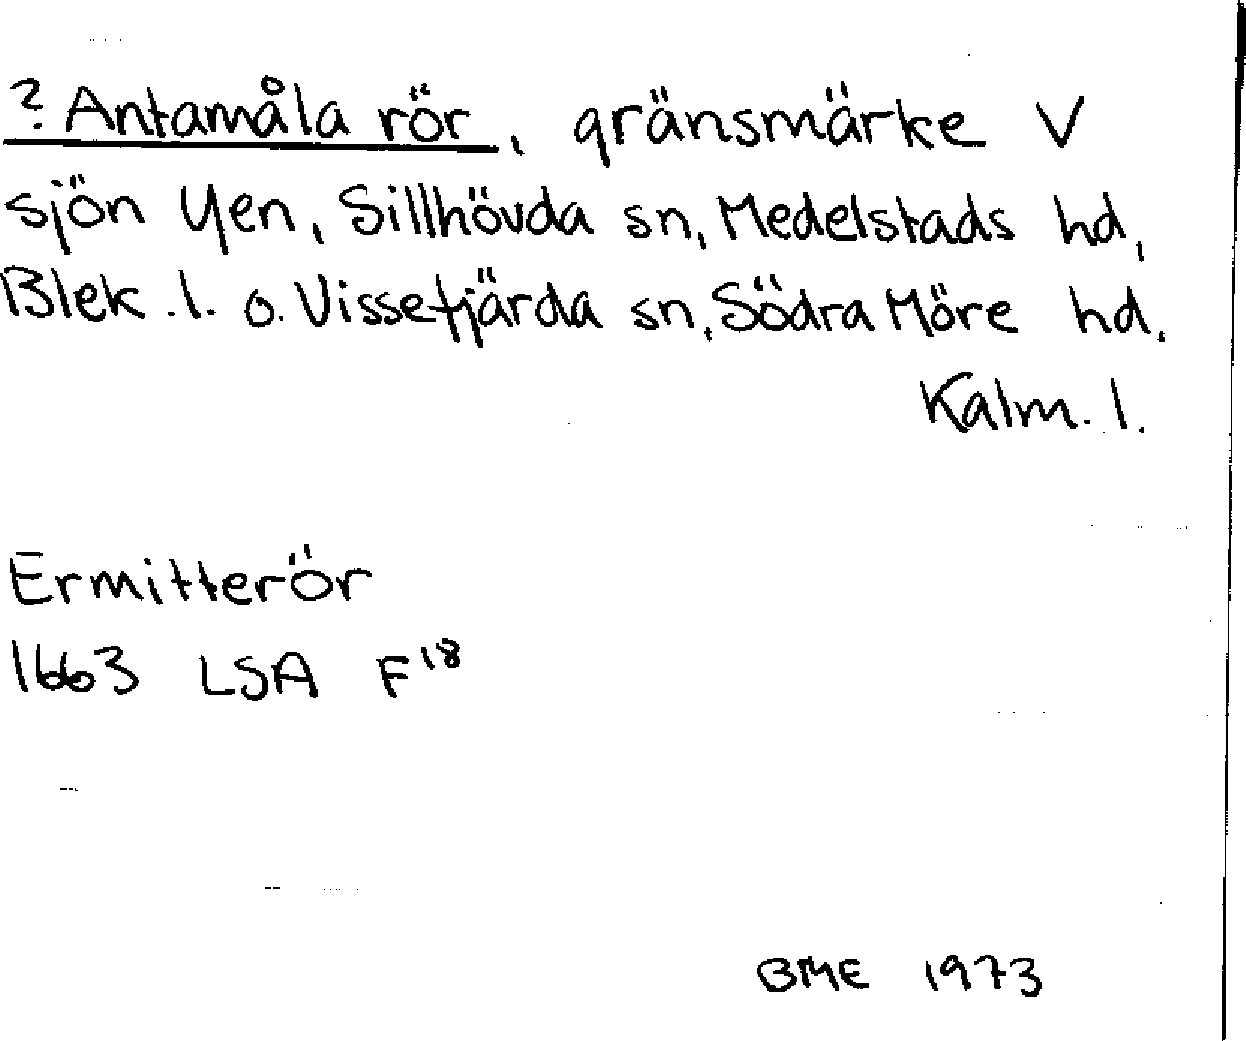 ? Antamåla rör, gränsmärke V
sjön Yen, Sillhövda sn, Medelstads hd,
Blek. l. o. Vissefjärda sn, Södra Möre hd.
Kalm. l.
Ermitterör
1663 LSA F18
BME 1973